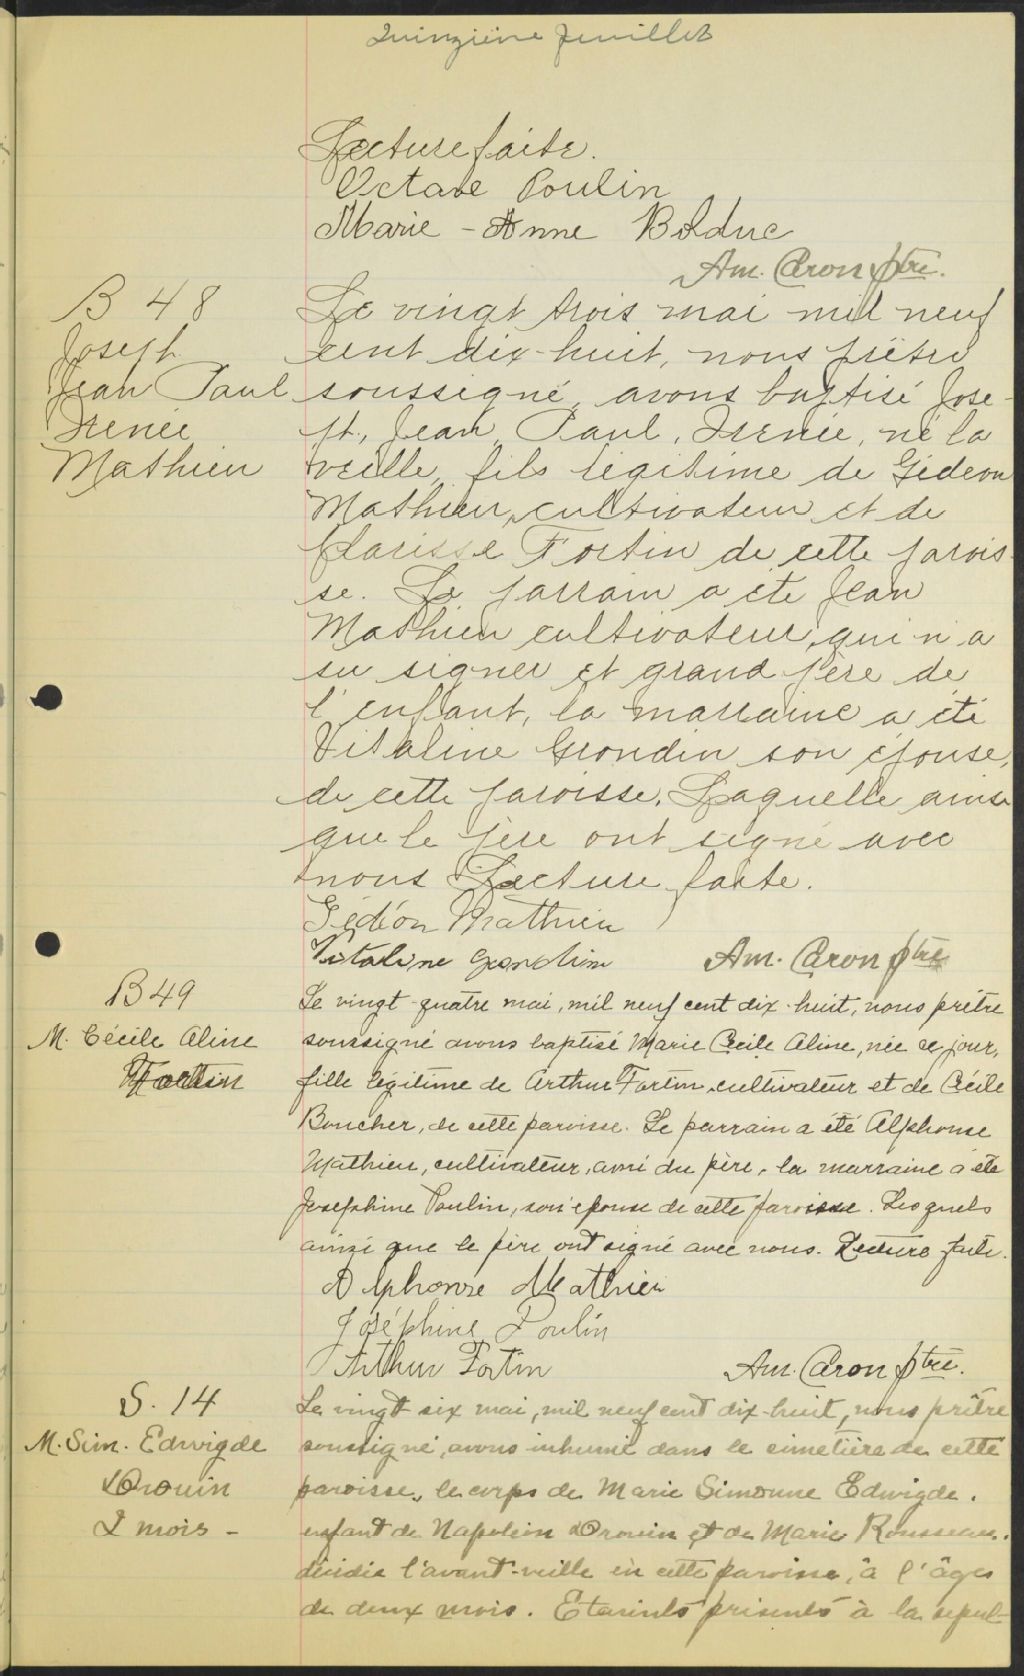 Quinzième feuillet
Lecture faite.
Octave Poulin
Marie-Anne Bolduc
Am. Caron ptre.
B 48
Joseph
Jean Paul
Irénée
Mathieu
Le vingt trois mai mil neuf
cent dix-huit, nous prêtre
soussigné, avons baptisé Jose-
ph, Jean Paul, Irénée, né la
veille, fils légitime de Gédeon
Mathieu, cultivateur et de
Clarisse Fortin de cette parois-
se. Le parrain a été Jean
Mathieu cultivateur, qui n'a
su signer et grand père de
l'enfant, la marraine a été
Vitaline Grondin son épouse,
de cette paroisse. Laquelle ainsi
que le père ont signé avec
nous Lecture faite.
Gédéon Mathieu
Vitaline Grondin
Am. Caron ptre
B 49
M. Cécile Aline
Fortin
Le vingt-quatre mai, mil neuf cent dix-huit, nous prêtre
soussigné avons baptisé Marie Cécile Aline, née ce jour,
fille légitime de Arthur Fortin cultivateur et de Cécile
Boucher, de cette paroisse. Le parrain a été Alphonse
Mathieu, cultivateur, ami du père, la marraine a été
Joséphine Poulin, son épouse de cette paroisse. Lesquels
ainsi que le père ont signé avec nous. Lecture faite.
Alphonse Mathieu
Joséphine Poulin
Arthur Fortin
Am. Caron ptre.
S. 14
M. Sim. Edwigde
Drouin
2 mois -
Le vingt-six mai, mil neuf cent dix-huit, nous prêtre
soussigné, avons inhumé dans le cimetière de cette
paroisse, le corps de Marie Simonne Edwigde.
enfant de Napoléon Drouin et de Marie Rousseau.
décédée l'avant-veille en cette paroisse, à l'âge
de deux mois. Etaients présents à la sépul-